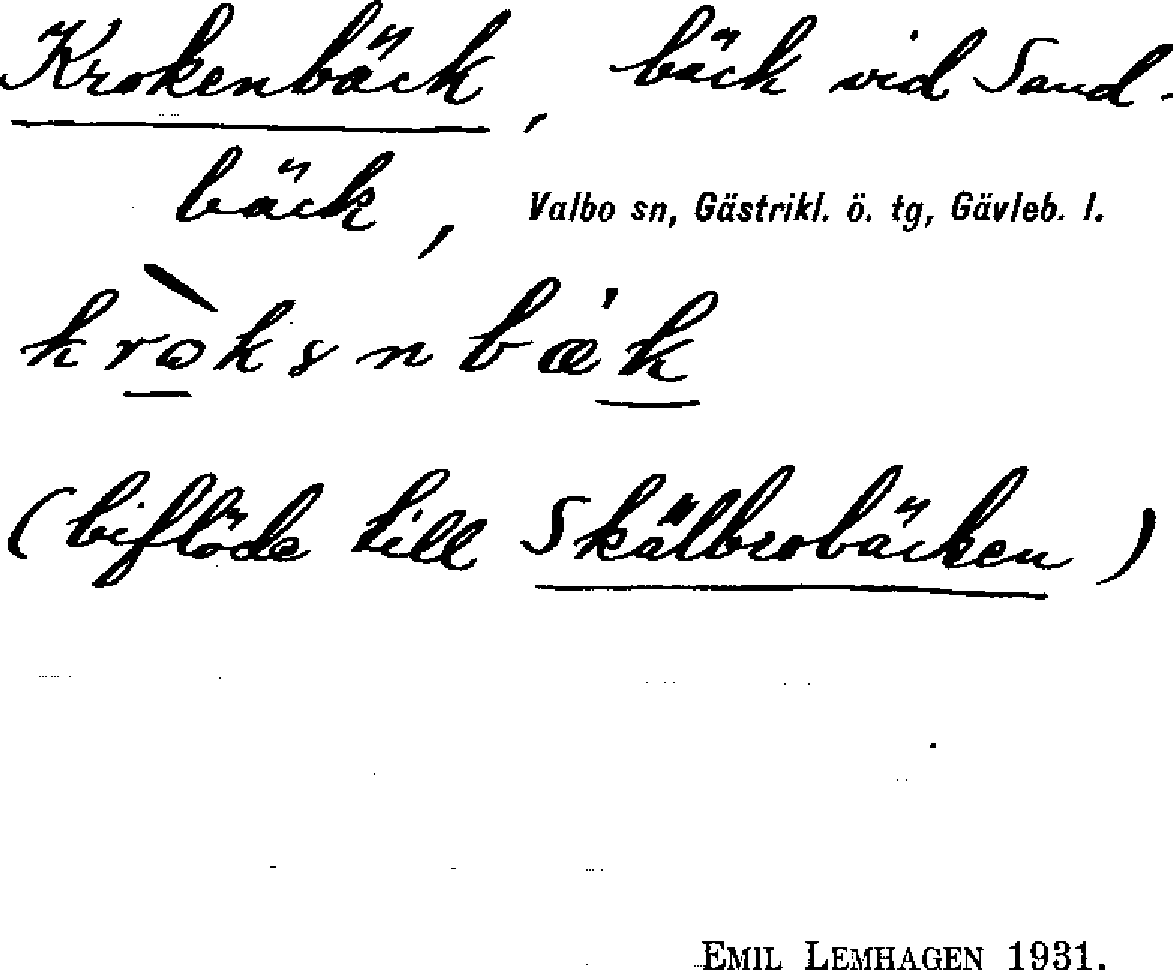 Krokenbäck, bäck vid Sand-
bäck, Valbo sn, Gästrikl. ö. tg, Gävleb. l.
(biflöde till Skälbrobäcken)
EMIL LEMHAGEN 1931.